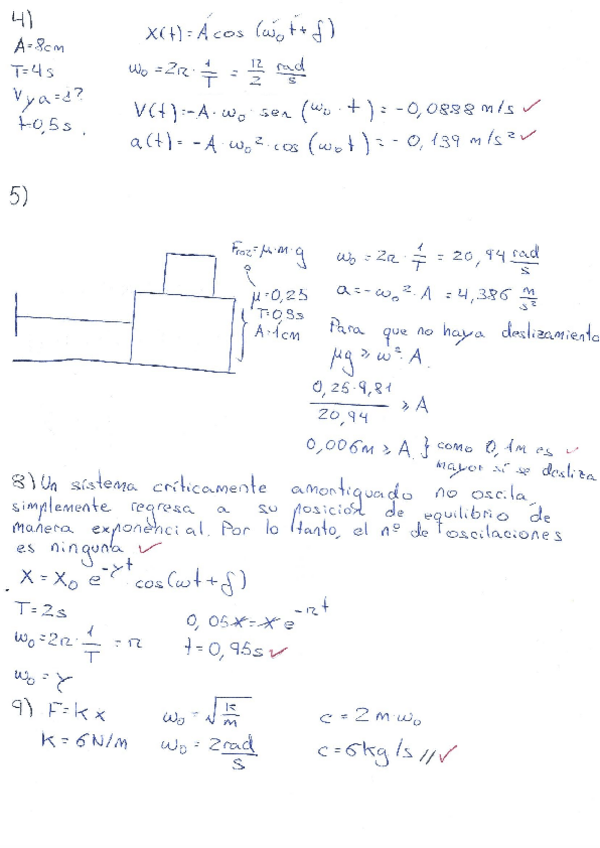 4)
A=8cm
T=4s
V y a=¿?
t=0,5s.
X(t)=A cos (ω₀t+δ)
ω₀=2π·1/T = π/2 rad/s
V(t)=-A·ω₀·sen(ω₀·t)=-0,0888 m/s ✓
a(t)=-A·ω₀²·cos(ω₀t)=-0,139 m/s² ✓
5)
Froz=μ·m·g
μ=0,25
T=0,3s
A=1cm
ω₀=2π·1/T = 20,94 rad/s
a=-ω₀²·A=4,386 m/s²
Para que no haya deslizamiento
μg ≥ ω²·A.
0,25·9,81/20,94 ≥ A
0,006m ≥ A } como 0,1m es ✓
mayor sí se desliza
8) Un sistema críticamente amortiguado no oscila,
simplemente regresa a su posición de equilibrio de
manera exponencial. Por lo tanto, el nº de oscilaciones
es ninguna ✓
X=X₀ e^-γt cos(ωt+δ)
T=2s
ω₀=2π·1/T=π
ω₀=γ
0,05x=x e^-πt
t=0,95s ✓
9) F=kx
K=6N/m
ω₀=√k/m
ω₀=2rad/s
c=2mω₀
c=6kg/s // ✓